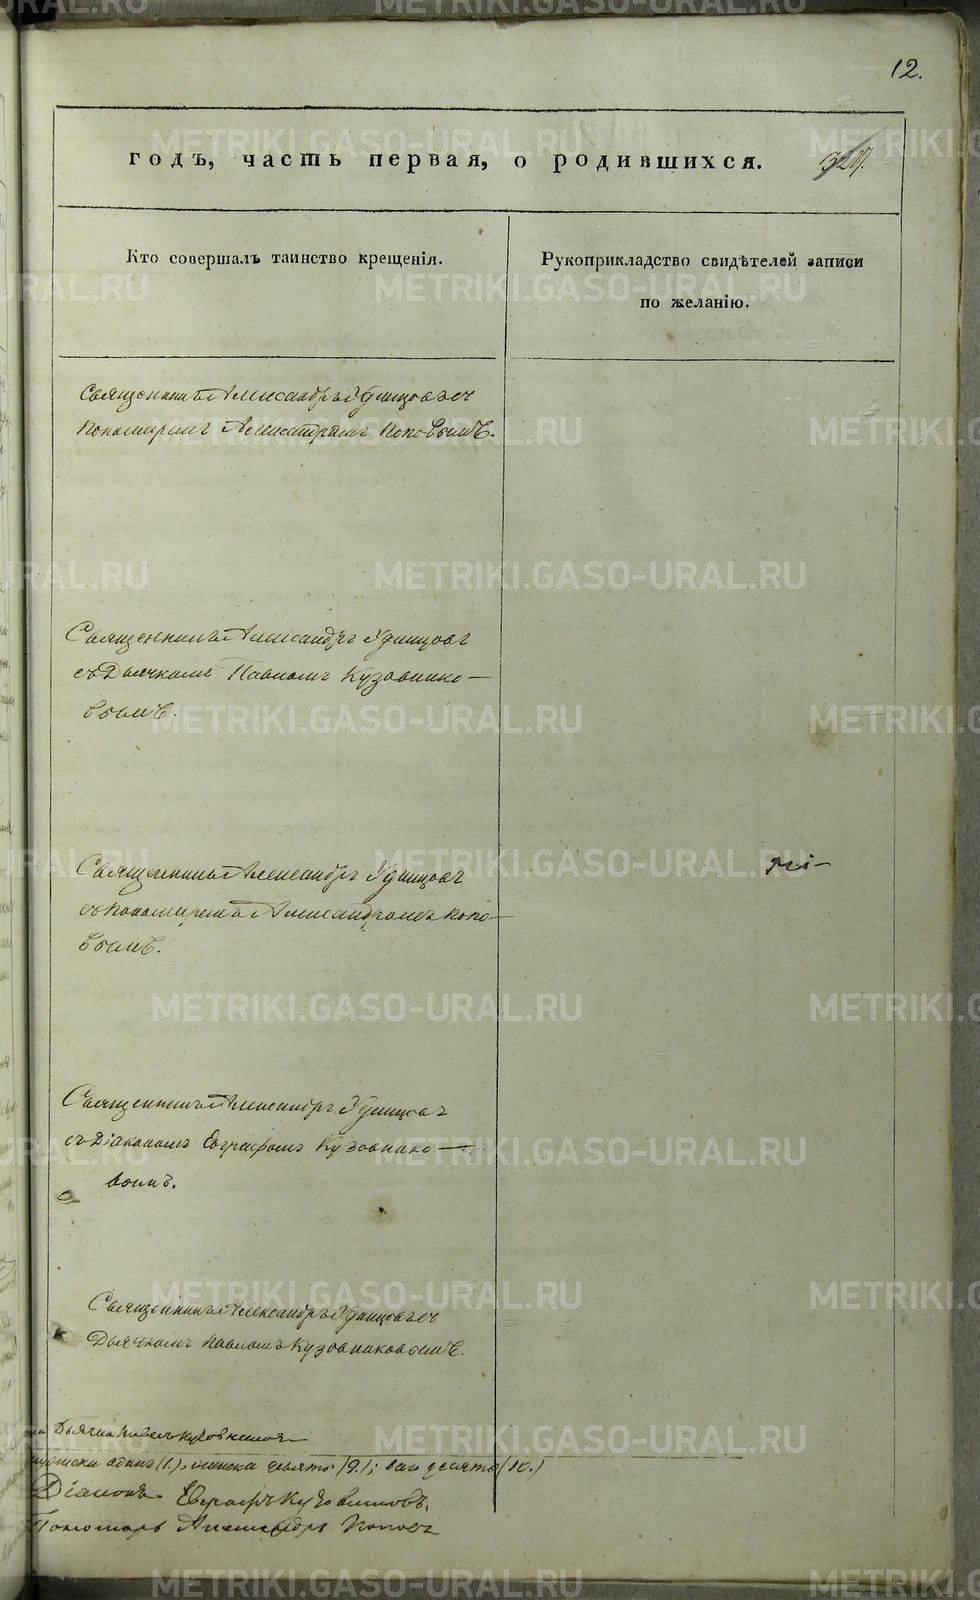 12.
годъ, часть первая, о родившихся.
Кто совершалъ таинство крещенія.
Рукоприкладство свидѣтелей записи
по желанію.
Священникъ Александръ Удинцовъ съ
Пономаремъ Александромъ Поповымъ.
Священникъ Александръ Удинцовъ
съ Дьячкомъ Павломъ Кузовнико-
вымъ.
Священникъ Александръ Удинцовъ
съ Пономаремъ Александромъ Попо-
вымъ.
Священникъ Александръ Удинцовъ
съ Діакономъ Евграфомъ Кузовнико-
вымъ.
Священникъ Александръ Удинцовъ съ
Дьячкомъ Павломъ Кузовниковымъ.
Дьячекъ Павелъ Кузовниковъ
одинъ (1.), женска девять (9.); всего десять (10.)
Діаконъ Евграфъ Кузовниковъ.
Пономарь Александръ Поповъ
METRIKI.GASO-URAL.RU